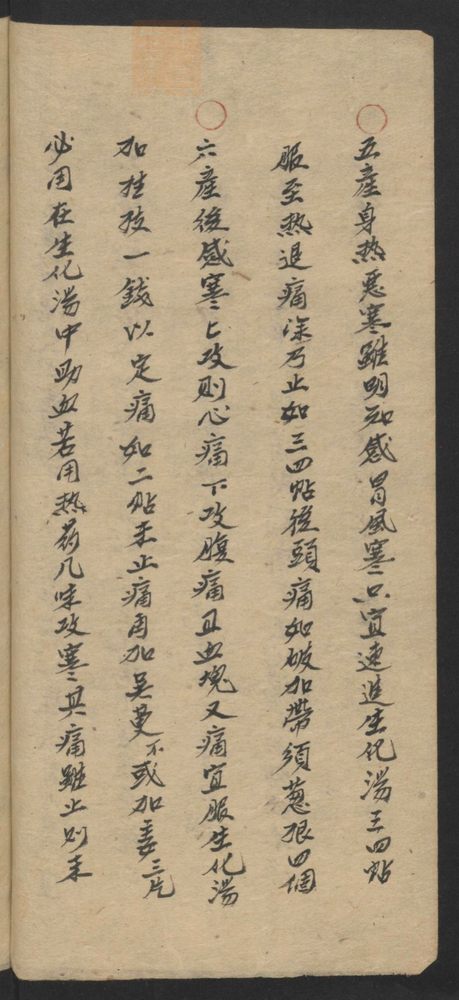 五產身熱惡寒雖明知感冒風寒只宜速進生化湯三四帖
服至熱退痛除乃止如三四帖後頭痛如破加帶須蔥根四個
六產後感寒上攻則心痛下攻腹痛且血塊又痛宜服生化湯
加桂枝一錢以定痛如二帖未止痛再加吳萸不或加姜三片
必用在生化湯中助血若用熱药几味攻寒其痛雖止则未